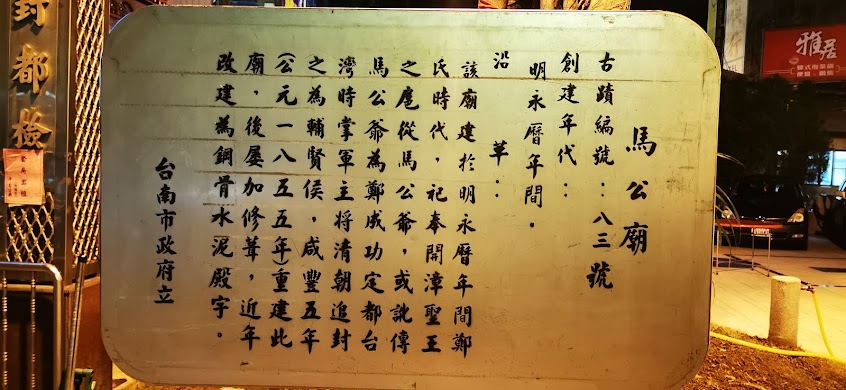 馬公廟
古蹟編號：八三號
創建年代：
明永曆年間。
沿　革：
該廟建於明永曆年間鄭
氏時代，祀奉開漳聖王
之麾從馬公爺，或訛傳
馬公爺為鄭成功定都台
灣時掌軍主將清朝追封
之為輔賢侯，咸豐五年
（公元一八五五年）重建此
廟，後屢加修葺，近年
改建為鋼骨水泥殿宇。
台南市政府立
封都檢
雅居